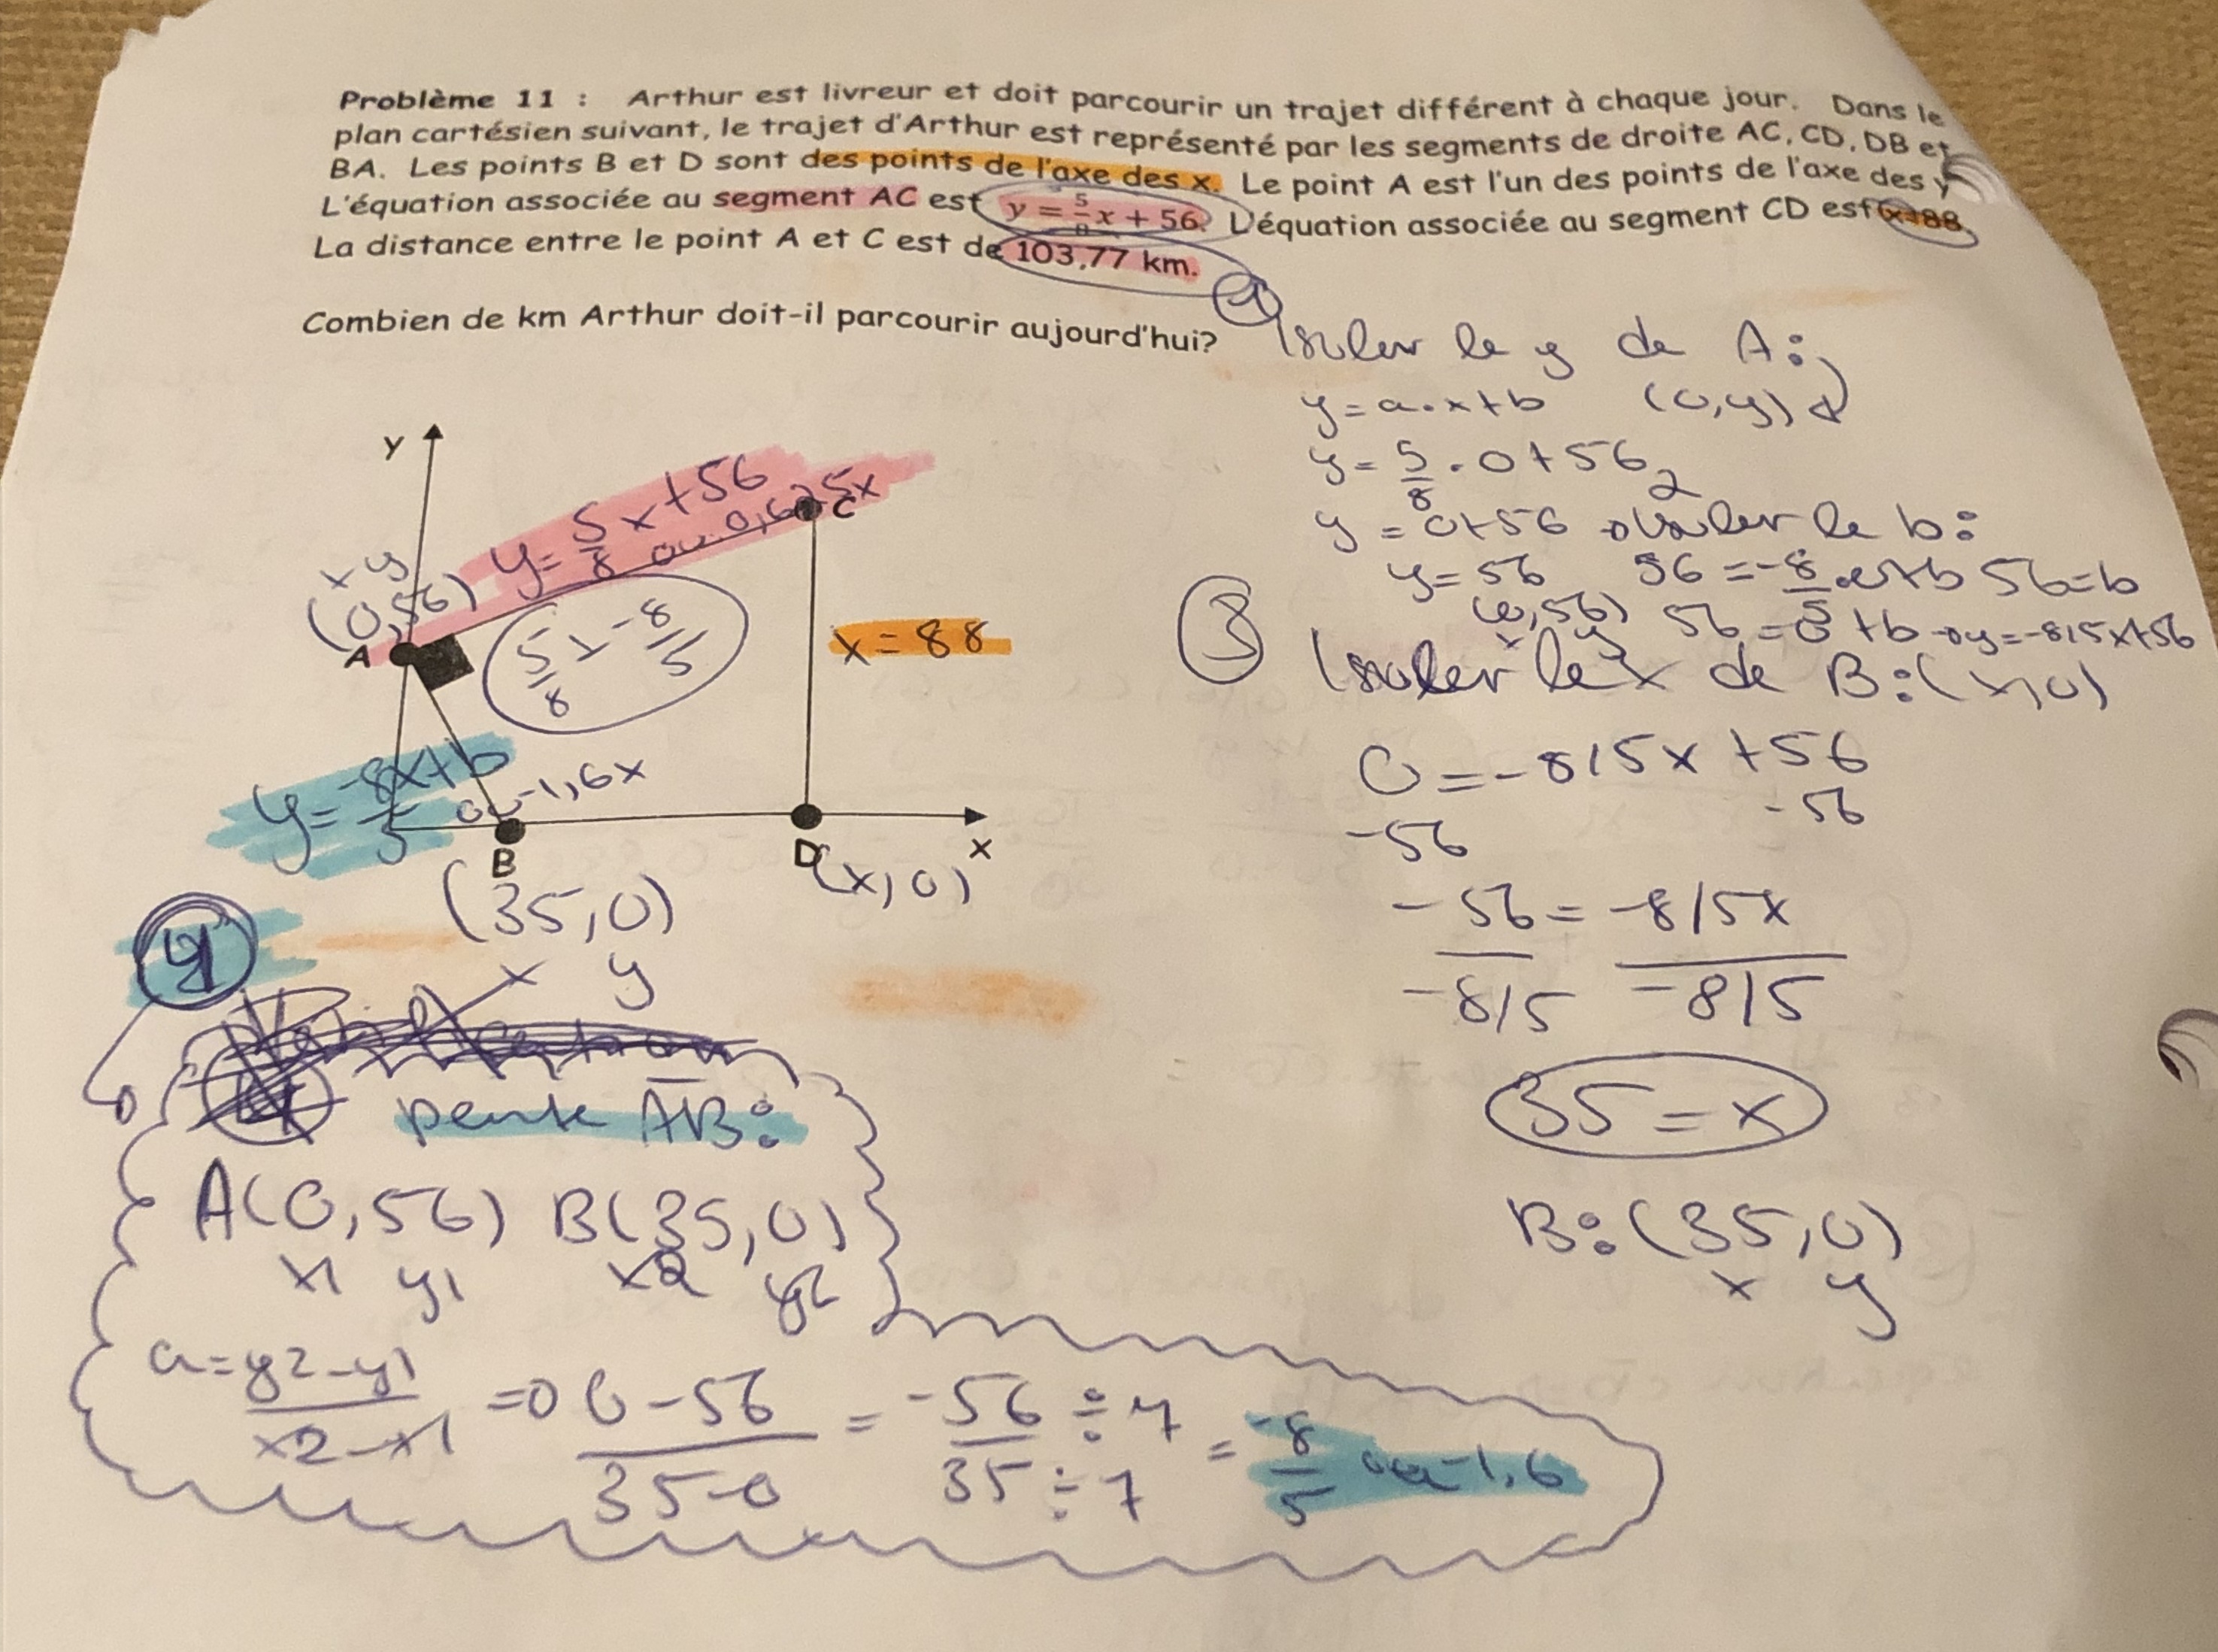 Problème 11 : Arthur est livreur et doit parcourir un trajet différent à chaque jour. Dans le
plan cartésien suivant, le trajet d'Arthur est représenté par les segments de droite AC, CD, DB et
BA. Les points B et D sont des points de l'axe des x. Le point A est l'un des points de l'axe des y
L'équation associée au segment AC est y = 5/8 x + 56. L'équation associée au segment CD est x=88.
La distance entre le point A et C est de 103,77 km.
Combien de km Arthur doit-il parcourir aujourd'hui?
1
Isoler le y de A:
y=a·x+b (0,y)
y = 5/8 · 0+56
2
y = 0+56 Isoler le b:
y = 56 56 = -8/5 · 0+b 56=b
(0,56) 56 = 0 +b → y=-8/5x+56
x y
3
Isoler le x de B: (x,0)
0 = -8/5x +56
-56 -56
-56 = -8/5x
-8/5 -8/5
35 = x
B: (35,0)
x y
y
x y
(0,56)
y = 5/8 x+56
ou 0,625x
C
A
5/8 ⊥ -8/5
x = 88
y = -8/5x+b
ou -1,6x
B
D (x,0)
x
(35,0)
x y
pente AB:
A(0,56) B(35,0)
x1 y1 x2 y2
a = y2-y1 / x2-x1 => 0-56 / 35-0 = -56÷7 / 35÷7 = -8/5 ou -1,6